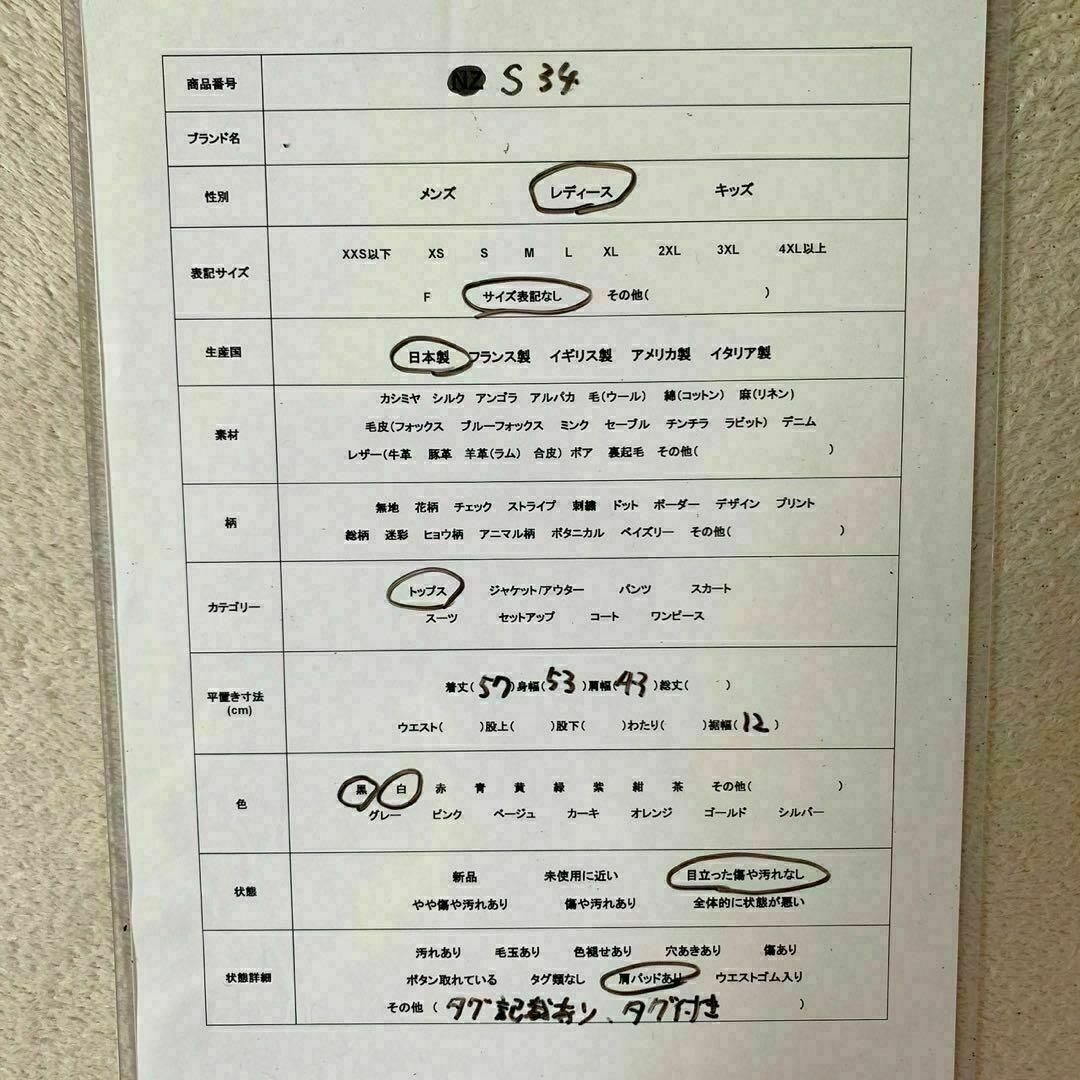 商品番号 NZ S 34
ブランド名
性別 メンズ レディース キッズ
XXS以下 XS S M L XL 2XL 3XL 4XL以上
表記サイズ
F サイズ表記なし その他( )
生産国 日本製 フランス製 イギリス製 アメリカ製 イタリア製
カシミヤ シルク アンゴラ アルパカ 毛(ウール) 綿(コットン) 麻(リネン)
素材 毛皮(フォックス ブルーフォックス ミンク セーブル チンチラ ラビット) デニム
レザー(牛革 豚革 羊革(ラム) 合皮) ボア 裏起毛 その他( )
無地 花柄 チェック ストライプ 刺繍 ドット ボーダー デザイン プリント
柄
総柄 迷彩 ヒョウ柄 アニマル柄 ボタニカル ペイズリー その他( )
トップス ジャケット/アウター パンツ スカート
カテゴリー
スーツ セットアップ コート ワンピース
着丈(57)身幅(53)肩幅(43)総丈( )
平置き寸法
(cm)
ウエスト( )股上( )股下( )わたり( )裾幅(12)
黒 白 赤 青 黄 緑 紫 紺 茶 その他( )
色
グレー ピンク ベージュ カーキ オレンジ ゴールド シルバー
新品 未使用に近い 目立った傷や汚れなし
状態
やや傷や汚れあり 傷や汚れあり 全体的に状態が悪い
汚れあり 毛玉あり 色褪せあり 穴あきあり 傷あり
状態詳細 ボタン取れている タグ類なし 肩パッドあり ウエストゴム入り
その他 (タグ記載有り、タグ付き )